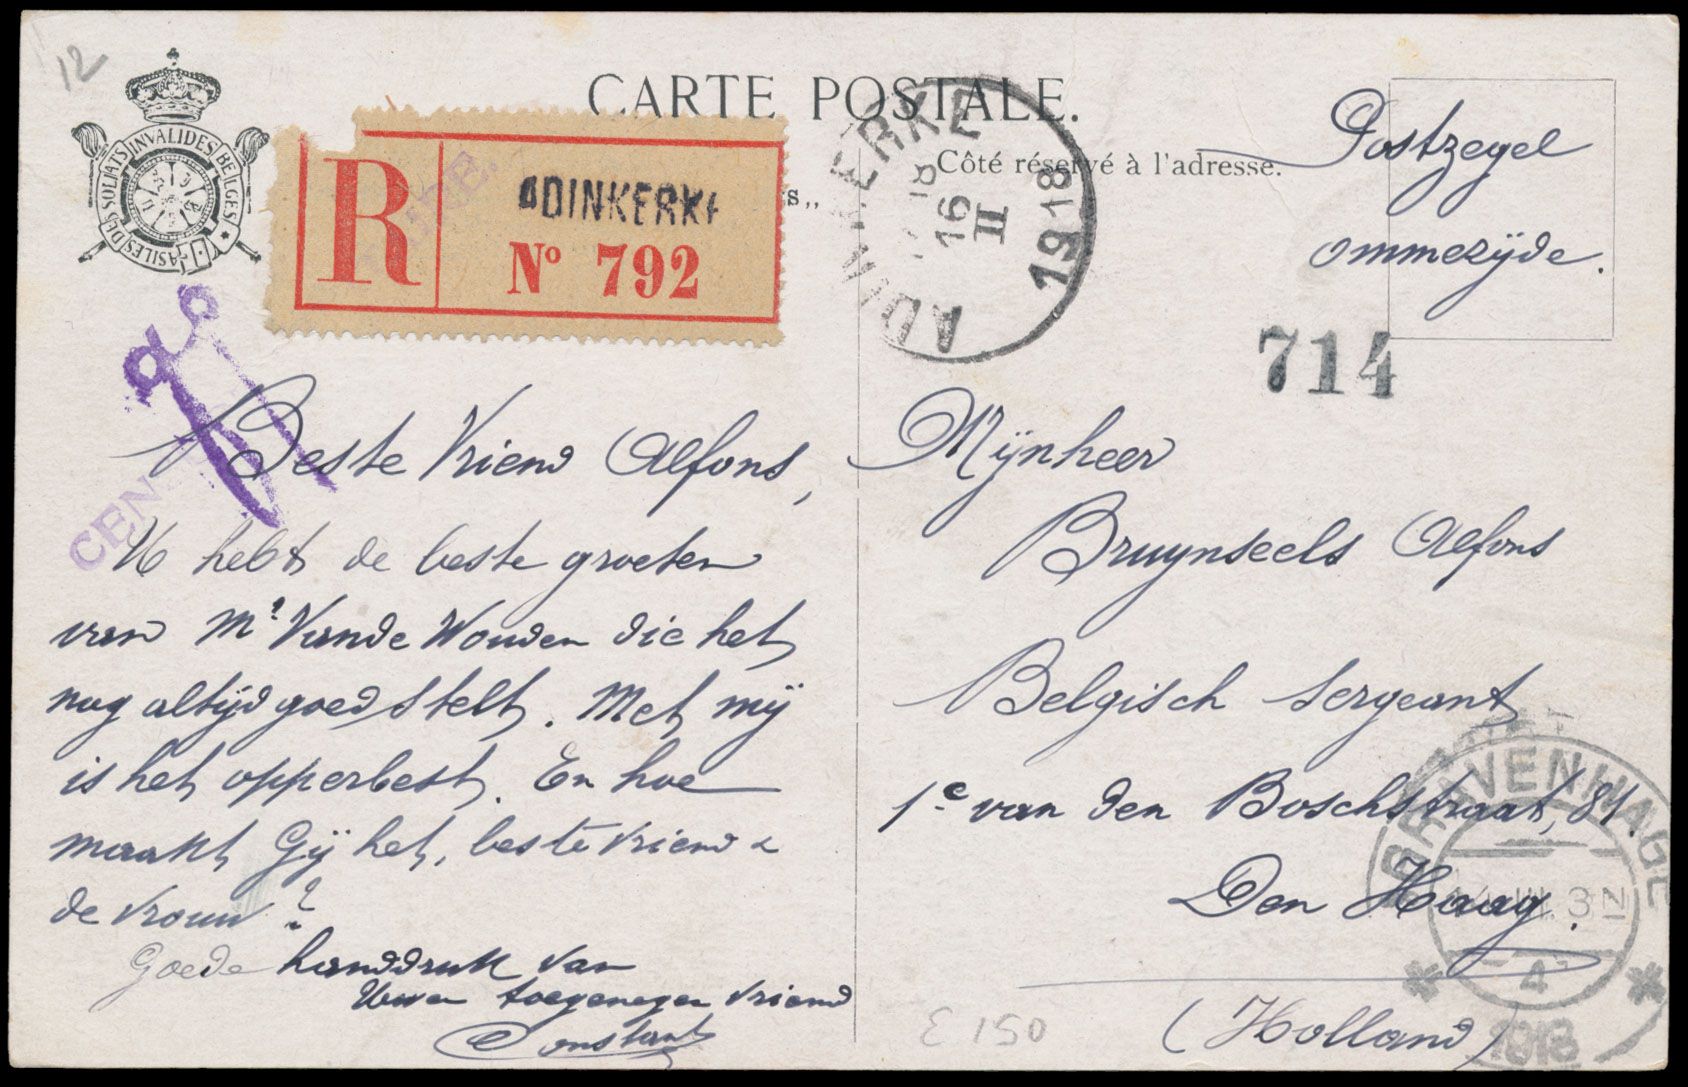 12
CARTE POSTALE.
Côté réservé à l'adresse.
ASILES DES SOLDATS INVALIDES BELGES
R
ADINKERKE
Nº 792
s,,
ADINKERKE
18
16
II
1918
Postzegel
ommezijde.
714
CEN
Beste Vriend Alfons,
U hebt de beste groeten
van Mr Vande Wouden die het
nog altijd goed stelt. Met mij
is het opperbest. En hoe
maakt Gij het, beste vriend &
de vrouw?
Goede handdruk van
Uwen toegenegen vriend
Constant
Mijnheer
Bruynseels Alfons
Belgisch Sergeant
1e van den Boschstraat, 81.
Den Haag.
(Holland)
'S GRAVENHAGE
III. 3 N
4
1918
E 150